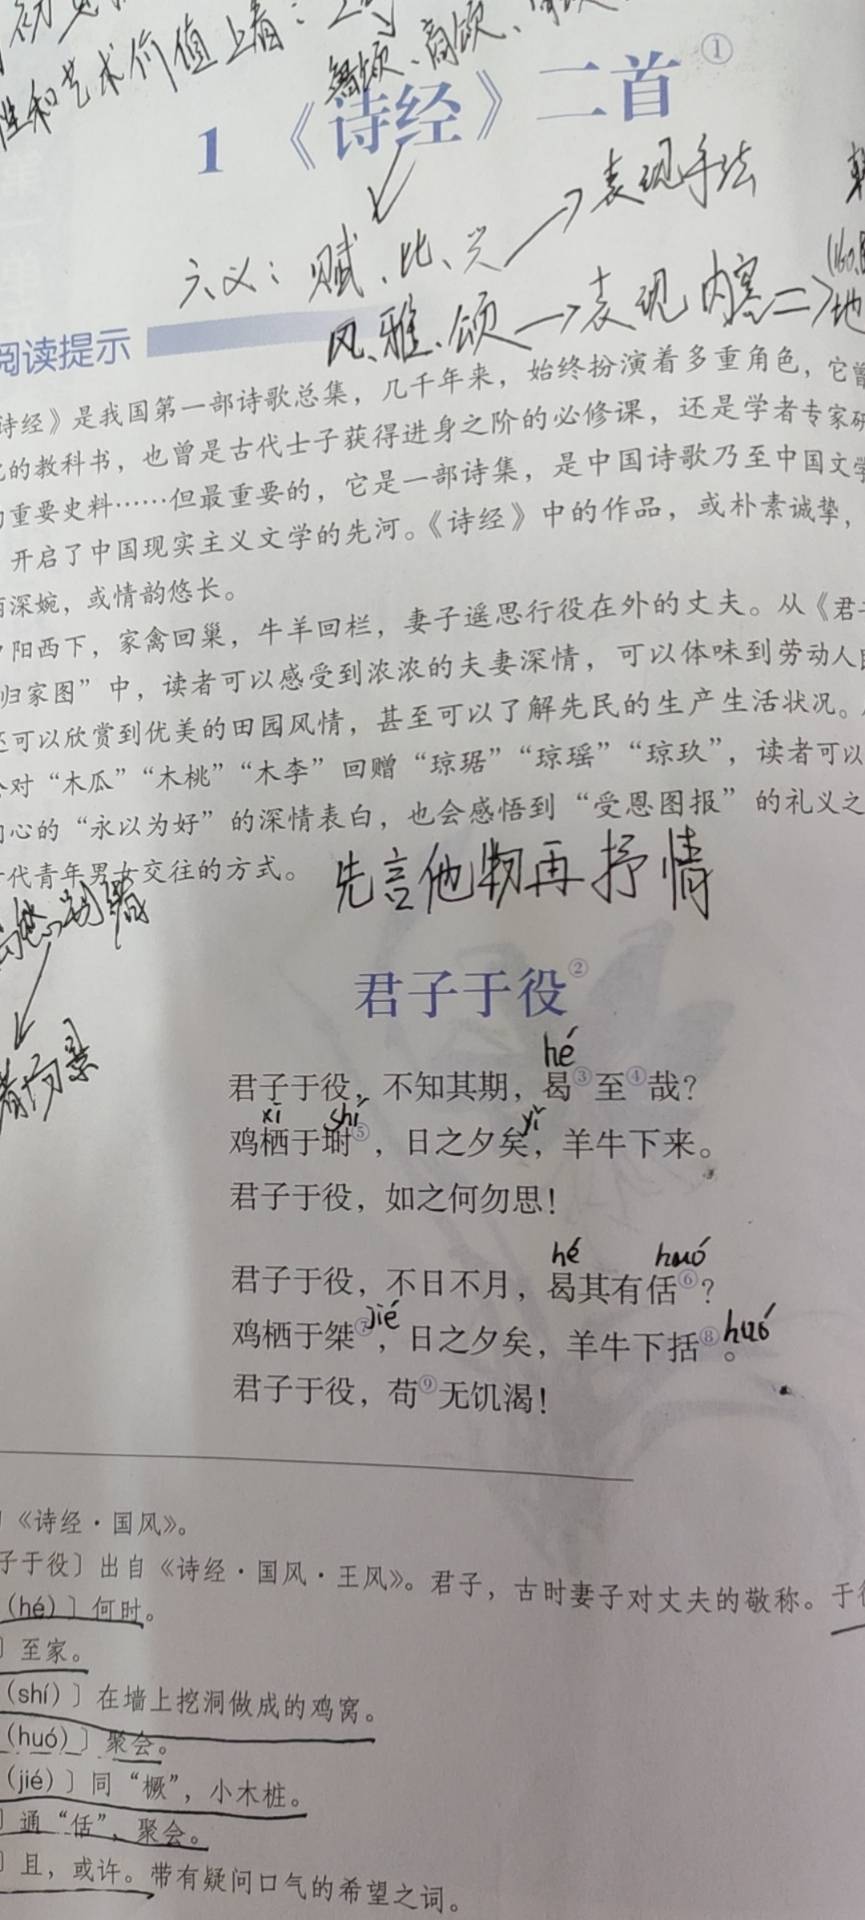 性和艺术价值上看：
鲁颂、商颂、
1 《诗经》二首①
六义：赋、比、兴→表现手法
风、雅、颂→表现内容=>地
阅读提示
诗经》是我国第一部诗歌总集，几千年来，始终扮演着多重角色，它曾
的教科书，也曾是古代士子获得进身之阶的必修课，还是学者专家研
重要史料……但最重要的，它是一部诗集，是中国诗歌乃至中国文学
开启了中国现实主义文学的先河。《诗经》中的作品，或朴素诚挚，
深婉，或情韵悠长。
夕阳西下，家禽回巢，牛羊回栏，妻子遥思行役在外的丈夫。从《君子
归家图”中，读者可以感受到浓浓的夫妻深情，可以体味到劳动人民
还可以欣赏到优美的田园风情，甚至可以了解先民的生产生活状况。
对“木瓜”“木桃”“木李”回赠“琼琚”“琼瑶”“琼玖”，读者可以
心的“永以为好”的深情表白，也会感悟到“受恩图报”的礼义之
代青年男女交往的方式。
先言他物再抒情
君子于役②
hé
君子于役，不知其期，曷③至④哉？
xī shí yǐ
鸡栖于埘⑤，日之夕矣，羊牛下来。
君子于役，如之何勿思！
hé huó
君子于役，不日不月，曷其有佸⑥？
鸡栖于桀⑦jié，日之夕矣，羊牛下括⑧。huó
君子于役，苟⑨无饥渴！
《诗经·国风》。
子于役〕出自《诗经·国风·王风》。君子，古时妻子对丈夫的敬称。于役
（hé）〕何时。
〕至家。
（shí）〕在墙上挖洞做成的鸡窝。
（huó）〕聚会。
（jié）〕同“橛”，小木桩。
〕通“佸”，聚会。
〕且，或许。带有疑问口气的希望之词。